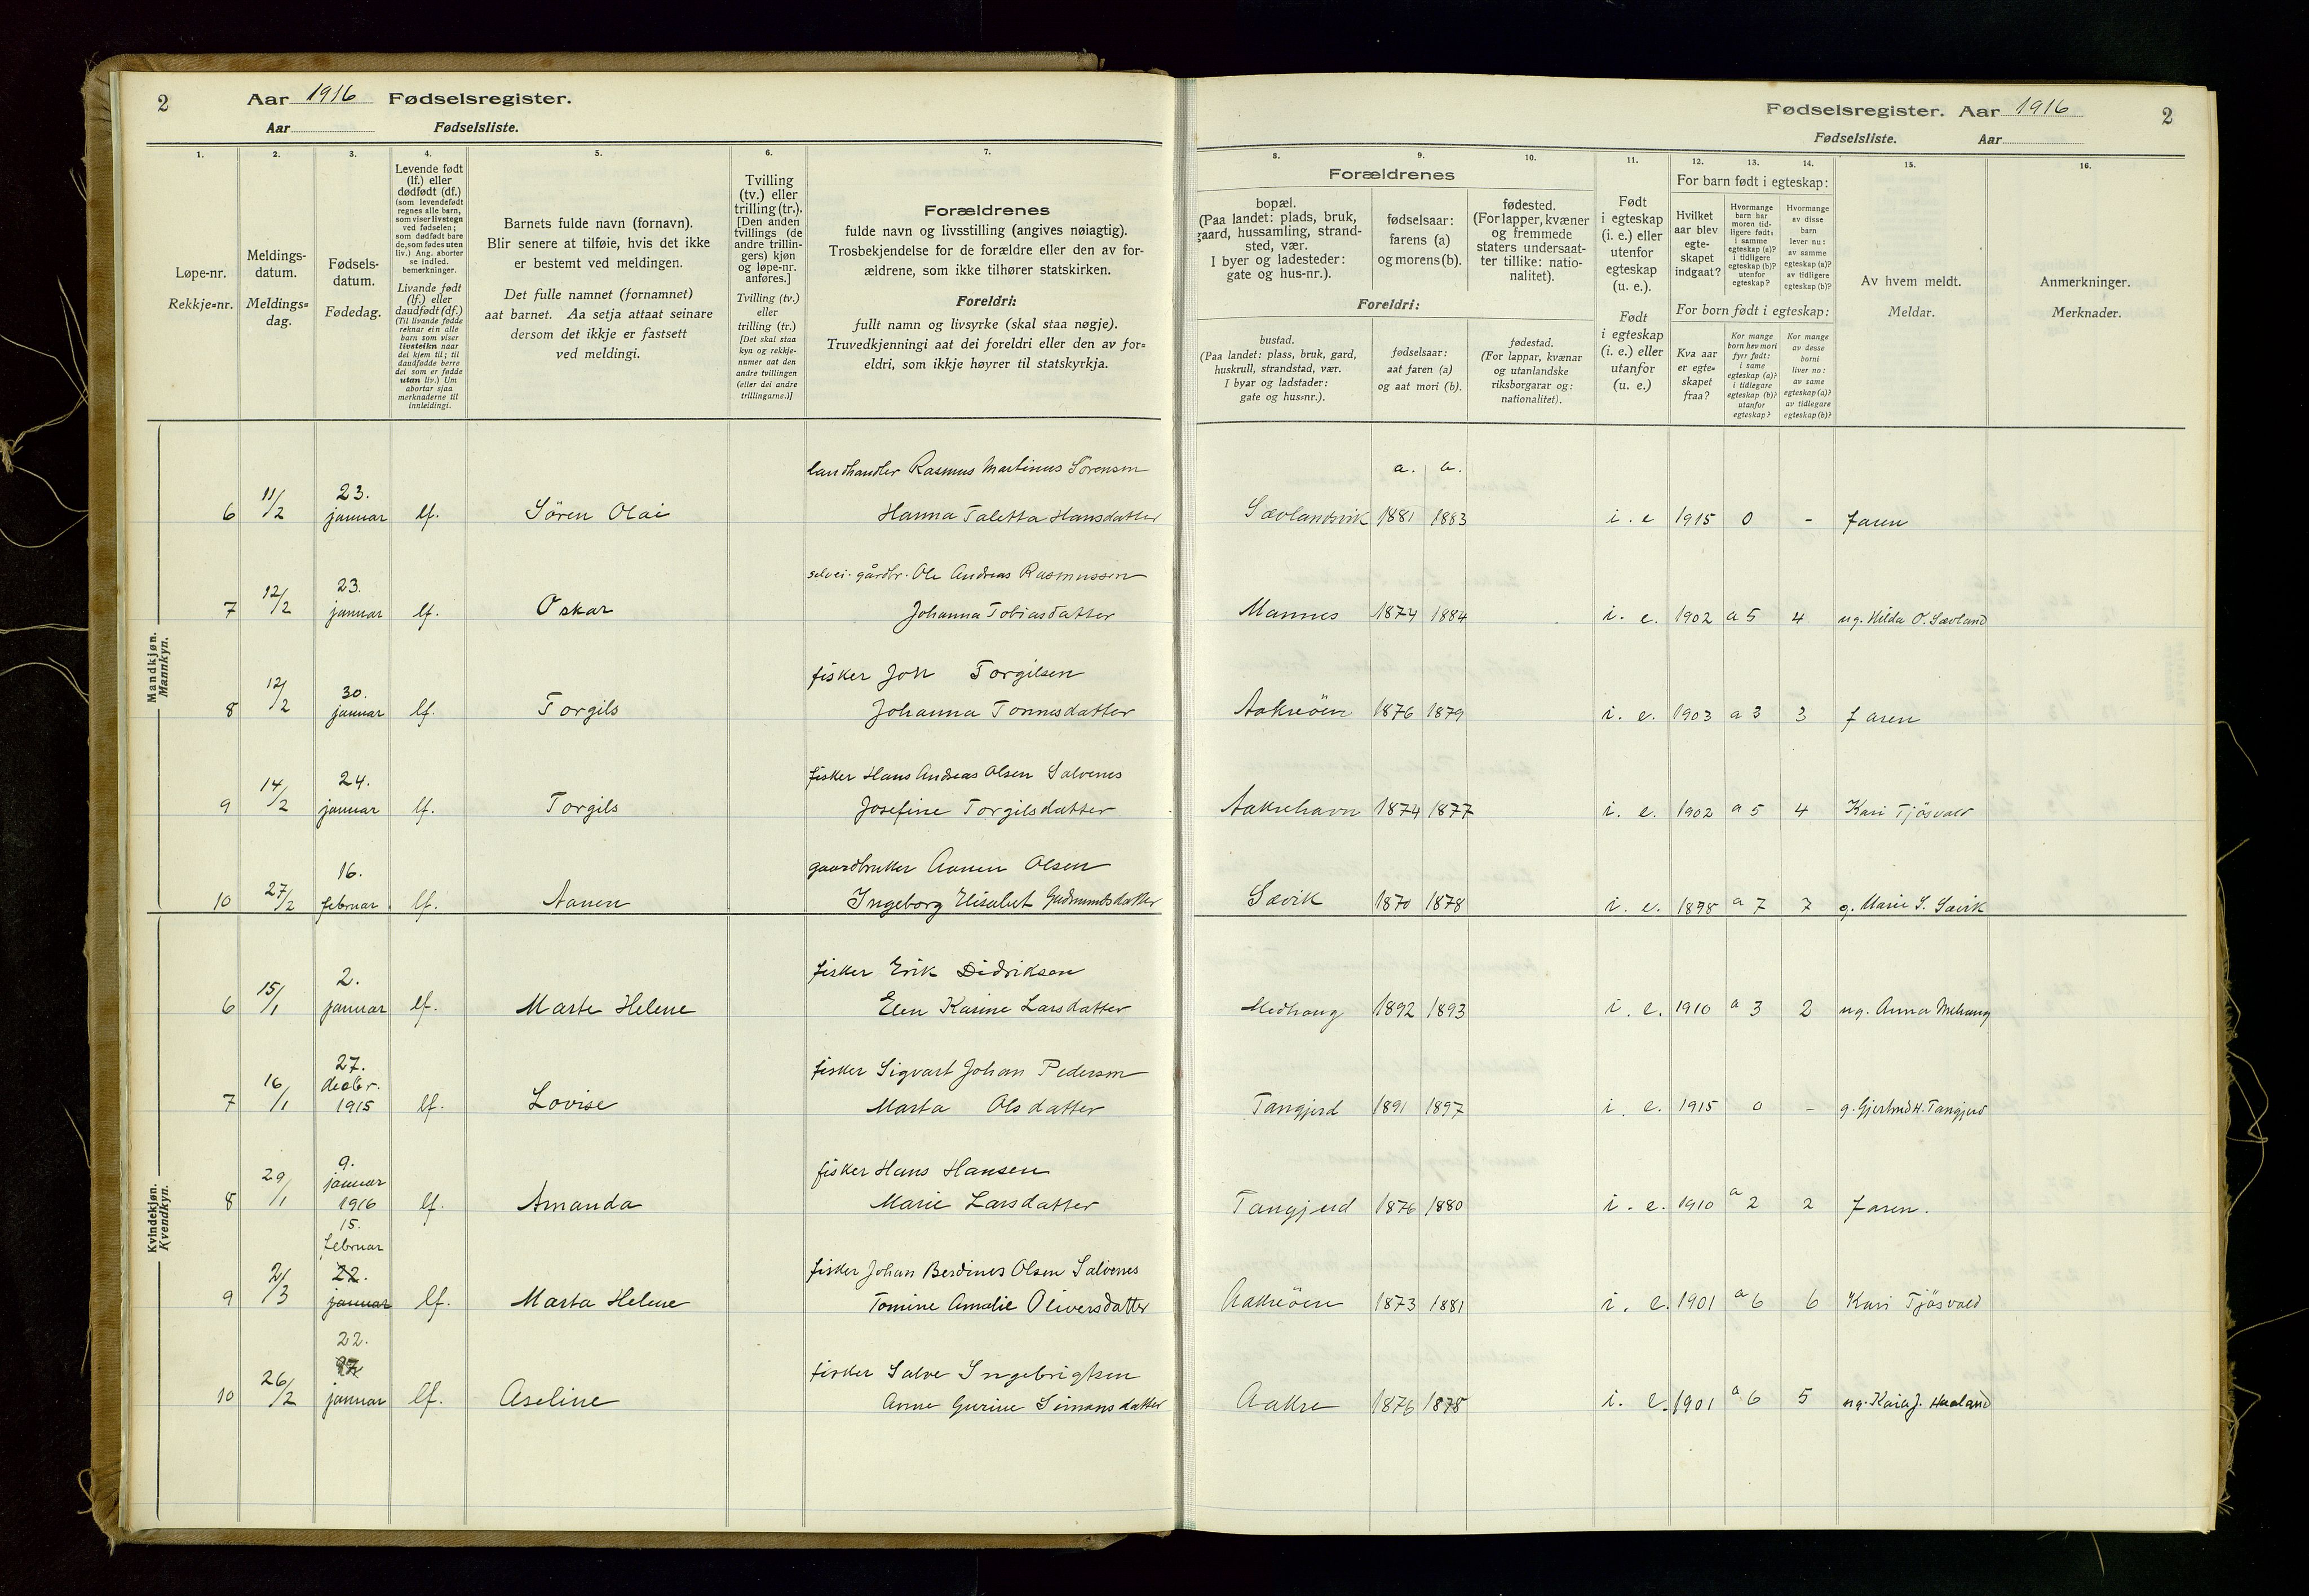 2 Aar 1916 Fødselsregister.
Aar Fødselsliste.
1. 2. 3. 4. 5. 6. 7.
Løpe-nr.
Rekkje=nr.
Meldings-
datum.
Meldings=
dag.
Fødsels-
datum.
Fødedag.
Levende født
(lf.) eller
dødfødt (df.)
(som levendefødt
regnes alle barn,
som viser livstegn
ved fødselen;
som dødfødt bare
de, som fødes uten
liv.) Ang. aborter
se indled.
bemerkninger.
Livande født
(lf.) eller
daudfødt (df.)
(Til livande fødde
reknar ein alle
barn som viser
livsteikn naar
dei kjem til; til
daudfødde berre
dei som er fødde
utan liv.) Um
abortar sjaa
merknaderne til
innleidingi.
Barnets fulde navn (fornavn).
Blir senere at tilføie, hvis det ikke
er bestemt ved meldingen.
Det fulle namnet (fornamnet)
aat barnet. Aa setja attaat seinare
dersom det ikkje er fastsett
ved meldingi.
Tvilling
(tv.) eller
trilling (tr.).
[Den anden
tvillings (de
andre trillin-
gers) kjøn
og løpe-nr.
anføres.]
Tvilling (tv.)
eller
trilling (tr.)
[Det skal staa
kyn og rekkje-
numer aat den
andre tvillingen
(eller dei andre
trillingarne.)]
Forældrenes
fulde navn og livsstilling (angives nøiagtig).
Trosbekjendelse for de forældre eller den av for-
ældrene, som ikke tilhører statskirken.
Foreldri:
fullt namn og livsyrke (skal staa nøgje).
Truvedkjenningi aat dei foreldri eller den av for=
eldri, som ikkje høyrer til statskyrkja.
Fødselsregister. Aar 1916 2
Fødselsliste. Aar
8. 9. 10. 11. 12. 13. 14. 15. 16.
Forældrenes
bopæl.
(Paa landet: plads, bruk,
gaard, hussamling, strand-
sted, vær.
I byer og ladesteder:
gate og hus-nr.).
fødselsaar:
farens (a)
og morens (b).
fødested.
(For lapper, kvæner
og fremmede
staters undersaat-
ter tillike: natio-
nalitet).
Foreldri:
bustad.
(Paa landet: plass, bruk, gard,
huskrull, strandstad, vær.
I byar og ladstader:
gate og hus=nr.).
fødselsaar:
aat faren (a)
og aat mori (b).
fødestad.
(For lappar, kvænar
og utanlandske
riksborgarar og:
nationalitet).
Født
i egteskap
(i. e.) eller
utenfor
egteskap
(u. e.).
Født
i egteskap
(i. e.) eller
utanfor
(u. e.)
For barn født i egteskap:
Hvilket
aar blev
egte-
skapet
indgaat?
Hvormange
barn har
moren tid-
ligere født:
i samme
egteskap (a)?
i tidligere
egteskap (b)?
utenfor
egteskap?
Hvormange
av disse
barn
lever nu:
av samme
egteskap (a)?
av tidligere
egteskap (b)?
For born født i egteskap:
Kva aar
er egte=
skapet
fraa?
Kor mange
born hev mori
fyrr født:
i same
egteskap (a)?
i tidlegare
egteskap (b)?
utanfor
egteskap?
Kor mange
av desse
borni
liver no:
av same
egteskap (a)?
av tidlegare
egteskap (b)?
Av hvem meldt.
Meldar.
Anmerkninger.
Merknader.
Mandkjøn.
Mannkyn.
landhandler Rasmus Martinus Sörensen a. b.
6 11/2 23. januar lf. Sören Olai Hanna Taletta Hansdatter Sævlandsvik 1881 1883 i. e 1915 0 - faren
selvei. gårdbr. Ole Andreas Rasmussen
7 12/2 23. januar lf. Oskar Johanna Tobiasdatter Mannes 1874 1884 i. e. 1902 a 5 4 ug. Hilda O. Sævland
fisker Jon Torgilsen
8 12/2 30. januar lf. Torgils Johanna Tönnisdatter Aakreöen 1876 1879 i. e. 1903 a 3 3 faren
fisker Hans Andreas Olsen Salvenes
9 14/2 24. januar lf. Torgils Josefine Torgilsdatter Aakrehavn 1874 1877 i. e. 1902 a 5 4 Kari Tjösvold
gaardbruker Aanen Olsen
10 27/2 16. februar lf. Aanen Ingeborg Elisabet Gudmundsdatter Sævik 1870 1878 i. e. 1898 a 7 7 g. Marie S. Sævik
Kvindekjøn.
Kvendkyn.
fisker Erik Didriksen
6 15/1 2. januar lf. Marte Helene Elen Karine Larsdatter Medhaug 1892 1893 i. e. 1910 a 3 2 ug. Anna Mehaug
fisker Sigvart Johan Pedersen
7 16/1 27. decbr. 1915 lf. Lovise Marta Olsdatter Tangjerd 1891 1897 i. e. 1915 0 - g. Gjertrud H. Tangjerd
fisker Hans Hansen
8 29/1 9. januar 1916 lf. Amanda Marie Larsdatter Tangjerd 1876 1880 i. e. 1910 a 2 2 faren.
15. februar
fisker Johan Berdines Olsen Salvenes
9 2/3 22. januar lf. Marta Helene Tomine Amalie Oliversdatter Aakreöen 1873 1881 i. e. 1901 a 6 6 Kari Tjösvold
22.
fisker Salve Ingebrigtsen
10 26/2 januar lf. Aseline Anne Gurine Simonsdatter Aakre 1876 1878 i. e. 1901 a 6 5 ug. Kaia J. Haaland